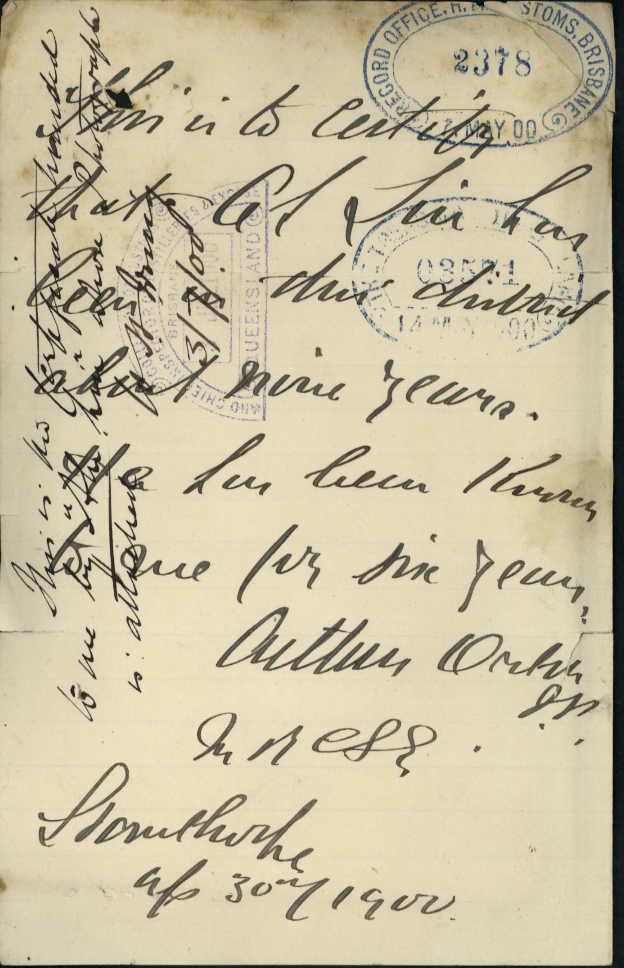 This is to certify
that Ah Sin has
been in this district
about nine years.
He has been Known
to me for six years.
Arthur Orton
J.P.
M R C S E.
Stannthorpe
Ap 30th/1900.
This is the Certificate handed
to me by Ah Sin whose Photograph
is attached
3/5/00
RECORD OFFICE, H. M. CUSTOMS, BRISBANE
2378
MAY 00
03571
14 MAY 1900
QUEENSLAND